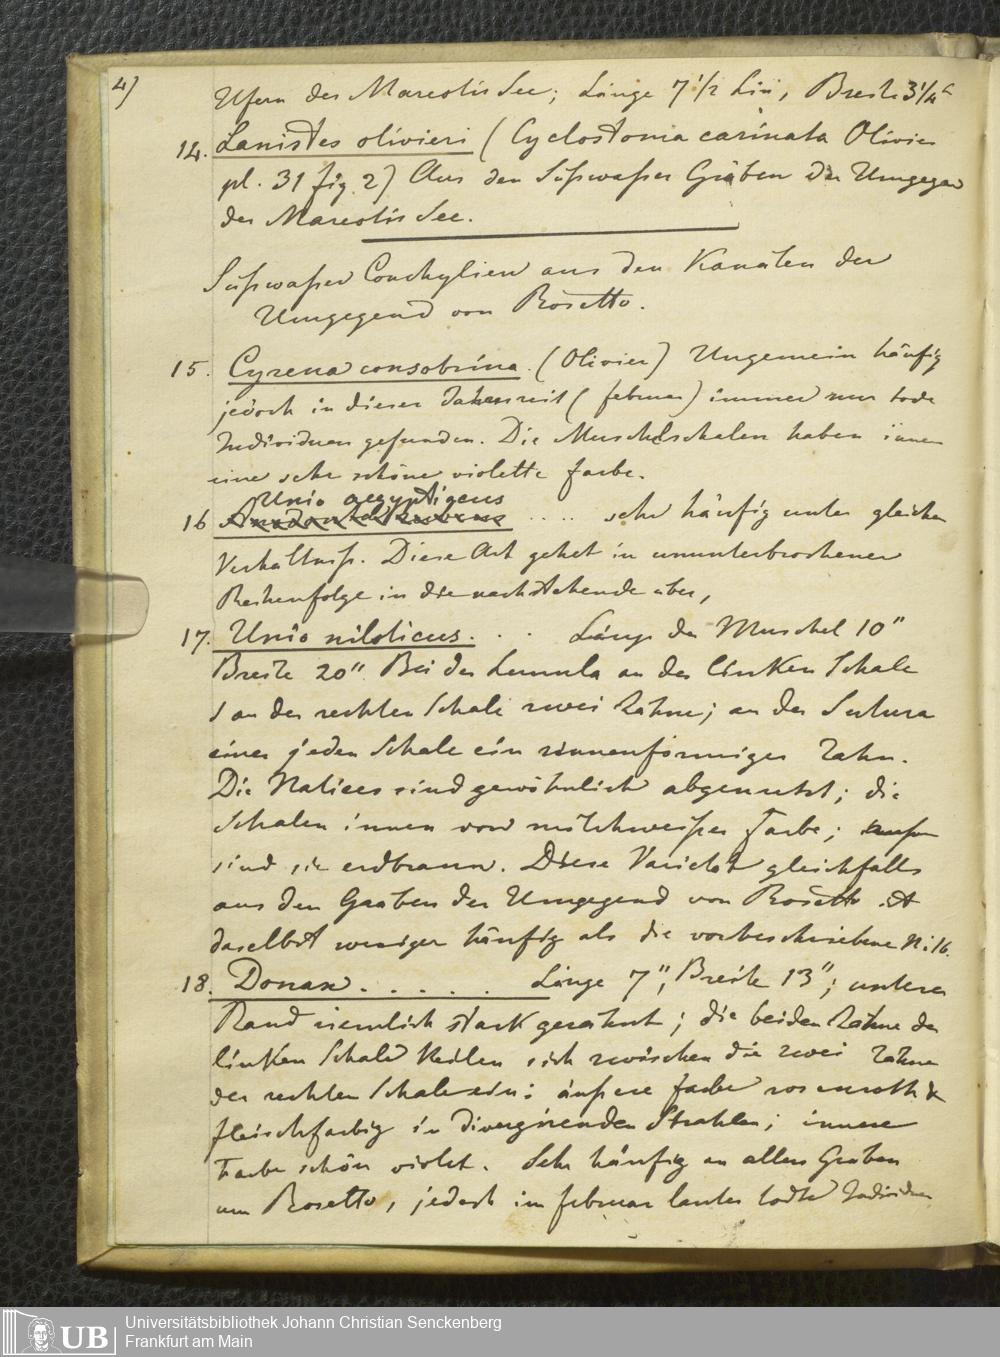 4)
Ufern des Mareotis See; Länge 7 1/2 Lin, Breite 3 1/4'''
14. Lanistes olivieri (Cyclostoma carinata Olivier
pl. 31 fig. 2) Aus den Süßwaßer Gräben der Umgegend
des Mareotis See.
Süßwaßer Conchylien aus den Kanälen der
Umgegend von Rosetto.
15. Cyrena consobrina. (Olivier) Ungemein häufig
jedoch in dieser Jahreszeit (februar) immer nur todte
Individuen gefunden. Die Muschelschalen haben innen
eine sehr schöne violette farbe.
Unio aegyptiacus
16 .... sehr häufig unter gleichen
Verhältniß. Diese Art gehet in ununterbrochener
Reihenfolge in die nachstehende über,
17. Unio niloticus. . . Länge der Muschel 10"
Breite 20" Bei der Lunula an der linken Schale
an der rechten Schale zwei Zähne; an der Sutura
einer jeden Schale ein rinnenförmiger Zahn.
Die Natices sind gewöhnlich abgenutzt; die
Schalen innen von milchweißer Farbe; außen
sind sie erdbraun. Diese Varietät gleichfalls
aus den Graben der Umgegend von Rosetto ist
daselbst weniger häufig als die vorbeschriebene N: 16.
18. Donax. . . . . . Länge 7", Breite 13"; unterer
Rand ziemlich stark gezähnt; die beiden Zähne der
linken Schale keilen sich zwischen die zwei Zähne
der rechten Schale ein; äußere farbe rosenroth &
fleischfarbig in divergirenden Strahlen; innere
Farbe schön violet. Sehr häufig in allen Graben
um Rosetto, jedoch im februar lauter todte Individuen
UB
Universitätsbibliothek Johann Christian Senckenberg
Frankfurt am Main